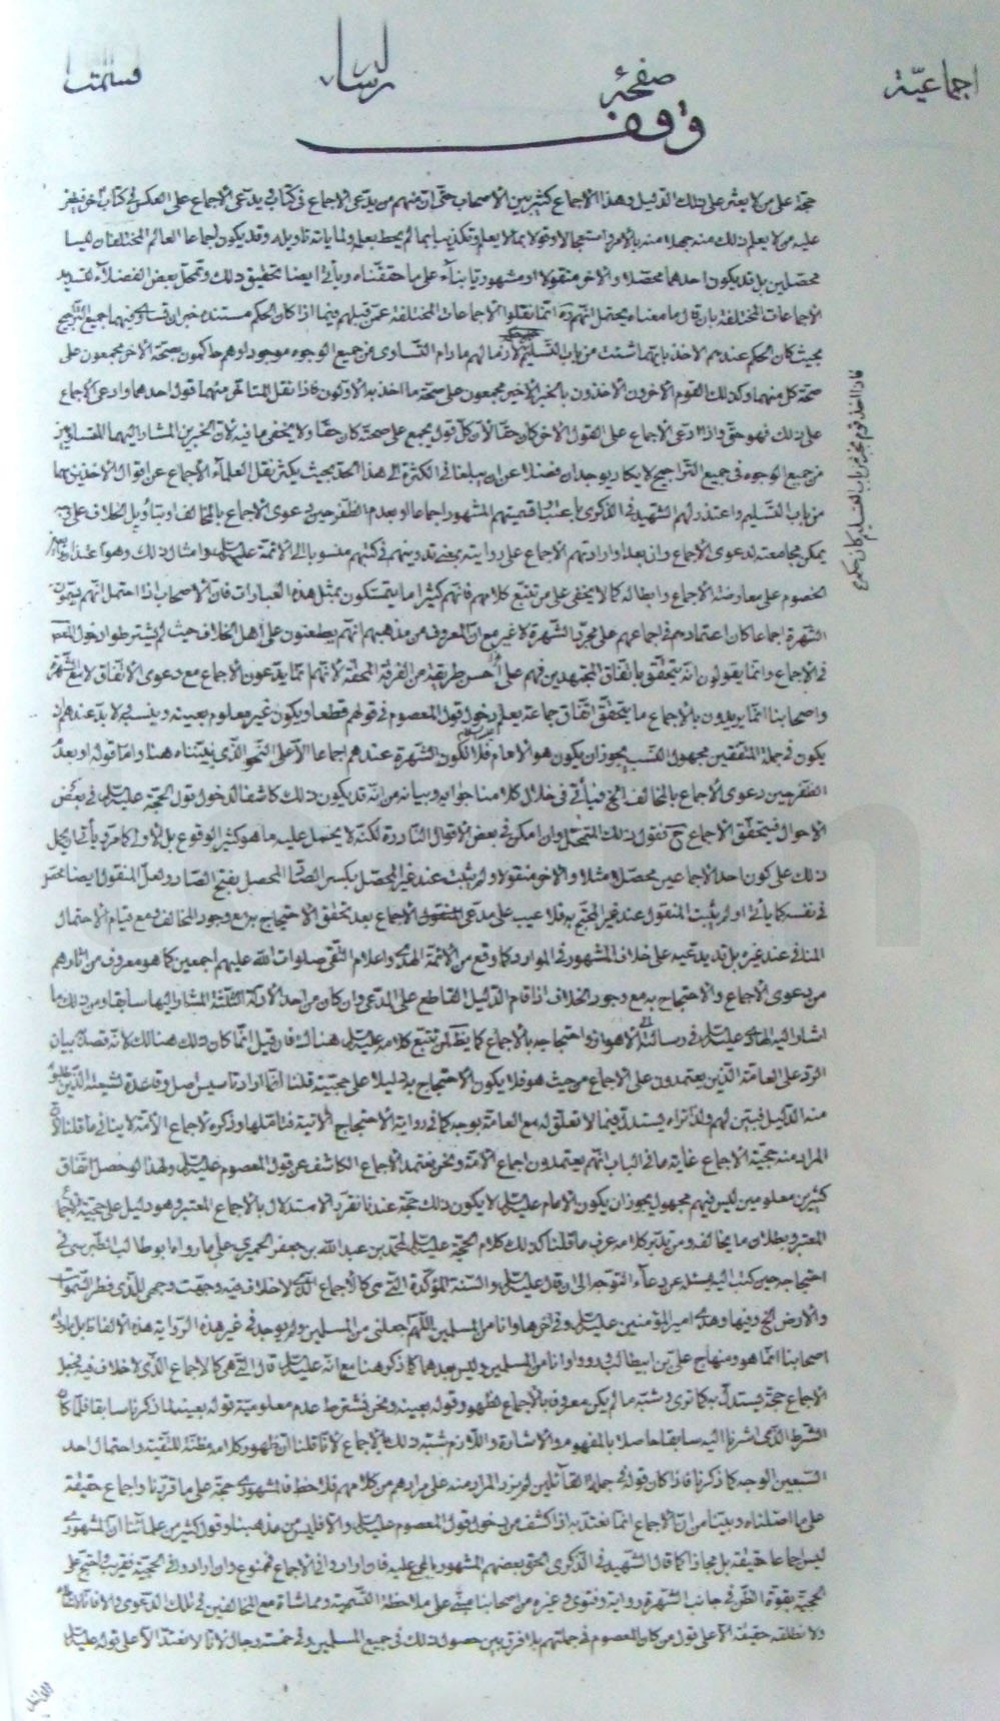 اجماعيّة
صفحة
الرسالة
وقف
حجة على من لا يعثر على ذلك الدليل وهذا الاجماع كثير بين الاصحاب حتى ان منهم من يدعى الاجماع فى كتاب ويدعى الاجماع على العكس فى كتاب اخر
عليه من لا يعلم ذلك منه جهلا منه بالامر واستعجالا وقولا بما لا يعلم وتكذيبا بما لم يحط بعلمه ولما ياته تاويله وقد يكون اجماعا العالم المختلفان ليسا
محصلين بل قد يكون احدهما محصلا والاخر منقولا او مشهوريا بناء على ما حققناه وياتى ايضا تحقيق ذلك وتمحل بعض الفضلاء لتسديد
الاجماعات المختلفة بان قال ما معناه يحتمل انهم انما نقلوا الاجماعات المختلفة عمن قبلهم فيما اذا كان الحكم مستنده خبران تساويا فيهما جميع التراجيح
بحيث كان الحكم عندهم الاخذ بايهما شئت من باب التسليم لازما لهم مادام التساوى من جميع الوجوه موجودا وهم حاكمون بصحة الاخر مجمعون على
صحة كل منهما وكذلك القوم الاخرون الاخذون بالخبر الاخر مجمعون على صحة ما اخذ به الاولون فاذا نقل المتاخر منهما قول احدهما وادعى الاجماع
على ذلك فهو حق واذا ادعى الاجماع على القول الاخر كان حقا لان كل قول مجمع على صحته كان حقا ولا يخفى ما فيه لان الخبرين المشار اليهما المتساويين
من جميع الوجوه فى جميع التراجيح لا يكاد يوجدان فضلا عن ان يبلغا فى الكثرة الى هذا الحد بحيث يكثر نقل العلماء الاجماع عن اقوال الاخذين بهما
من باب التسليم واعتذر لهم الشهيد فى الذكرى باعتبار تسميتهم المشهور اجماعا او بعدم الظفر حين دعوى الاجماع بالمخالف او بتاويل الخلاف على وجه
يمكن مجامعته لدعوى الاجماع وان بعد او ارادتهم الاجماع على روايته بمعنى تدوينهم فى كتبهم منسوبا الى الائمة عليهم السلام وامثال ذلك وهو
الخصوم على معارضة الاجماع وابطاله كما لا يخفى على من تتبع كلامهم فانهم كثيرا ما يتمسكون بمثل هذه العبارات فان الاصحاب اذا احتمل انهم يسمون
الشهرة اجماعا كان اعتمادهم فى اجماعهم على مجرد الشهرة لا غير مع ان المعروف من مذهبهم انهم يطعنون على اهل الخلاف حيث لم يشترطوا دخول المعصوم
فى الاجماع وانما يقولون انه يتحقق باتفاق المجتهدين فهم على احسن طريقة من الفرقة المحقة لانهم انما يدعون الاجماع مع دعوى الاتفاق لا مع الشهرة
واصحابنا انما يريدون بالاجماع ما يتحقق اتفاق جماعة يعلم دخول قول المعصوم فى قولهم قطعا ويكون غير معلوم بعينه وبنسبه لا بد عندهم ان
يكون فى جملة المتفقين مجهول النسب يجوز ان يكون هو الامام فلا تكون الشهرة عندهم اجماعا الا على النحو الذى بيناه هنا واما قوله او بعدم
الظفر حين دعوى الاجماع بالمخالف الخ فياتى فى خلال كلامنا جوابه وبيانه من انه قد يكون ذلك كاشفا لدخول قول الحجة عليه السلام فى بعض
الاحوال فيتحقق الاجماع ح فنقول ذلك المتمحل وان امكن فى بعض الاقوال النادرة لكنه لا يحتمل عليه ما هو كثير الوقوع بل الاولى كما مر وياتى ان يحمل
ذلك على كون احد الاجماعين محصلا مثلا والاخر منقولا ولم يثبت عند غير المحصل بكسر الصاد المحصل بفتح الصاد ولعل المنقول ايضا محصل
فى نفسه كما ياتى او لم يثبت المنقول عند غير المحتج به فلا عيب على مدعى الاجماع بعد تحقق الاحتجاج به مع وجود المخالف ومع قيام الاحتمال
المنافى عند غيره بل قد يدعيه على خلاف المشهور فى الموارد كما وقع من الائمة الهداة واعلام التقى صلوات الله عليهم اجمعين كما هو معروف من اثارهم
من دعوى الاجماع والاحتجاج به مع وجود الخلاف اذا قام الدليل القاطع على المدعى وان كان من احد الادلة الثلثة المشار اليها سابقا ومن ذلك ما
اشار اليه الهادى عليه السلام فى رسالته الى الاهواز واحتجاجه بالاجماع كما يظهر لمن تتبع كلامه عليه السلام هناك فان قيل انما كان ذلك هنالك لانه قصد بيان
الرد على العامة الذين يعتمدون على الاجماع من حيث هو فلا يكون الاحتجاج به دليلا على حجيته قلنا انما اراد تاسيس اصل وقاعدة لشيعته الذين
منه الدليل فبين لهم ولذا تراه يستدل فيما لا تعلق له مع العامة بوجه كما فى رواية الاحتجاج الاتية فتاملها وذكره لاجماع الامة لا ينافى ما قلنا لان
المراد منه حجية الاجماع غاية ما فى الباب انهم يعتمدون اجماع الامة ونحن نعتمد الاجماع الكاشف عن قول المعصوم عليه السلام ولهذا لو حصل اتفاق
كثيرين معلومين ليس فيهم مجهول يجوز ان يكون الامام عليه السلام لا يكون ذلك حجة عندنا تقرير الاستدلال بالاجماع المعتبر وهو دليل على حجية الاجماع
المعتبر وبطلان ما يخالفه ومن تدبر كلامه عرف ما قلنا كذلك كلام الحجة عليه السلام لمحمد بن عبد الله بن جعفر الحميرى على ما رواه ابو طالب الطبرسى فى
احتجاجه حين كتب اليه يسئله عن دعاء التوجه الى ان قال عليه السلام والسنة المؤكدة التى هى كالاجماع الذى لا خلاف فيه وجهت وجهى للذى فطر السموات
والارض الخ وفيها وهدى امير المؤمنين عليه السلام وفى اخرها وانا من المسلمين اللهم اجعلنى من المسلمين ولم يوجد فى غير هذه الرواية هذه الالفاظ بل
اصحابنا انما هو ومنهاج على بن ابيطالب ورووا وانا من المسلمين وليس بعدهما كما ذكر هنا مع انه عليه السلام قال التى هى كالاجماع الذى لا خلاف فيه فجعل
الاجماع حجة يستدل به كما ترى وشبه ما لم يكن معروفا بالاجماع لظهوره وقوله بعينه ونحن نشترط عدم معلومية قوله بعينه لما ذكرنا سابقا فلما كان
الشرط الذى اشرنا اليه سابقا حاصلا بالمفهوم والاشارة واللازم شبه ذلك بالاجماع لانا قلنا ان ظهور كلامه مظنة للتقية واحتمال احد
السبعين الوجه كما ذكرنا فاذا كان قوله فى جملة القائلين لم يزد المراد منه على مرادهم من كلامهم فلاحظ فالمشهورى حجة على ما قررنا واجماع حقيقة
على ما اصلناه وبينا من ان الاجماع انما نعتد به اذا كشف من دخول قول المعصوم عليه السلام والا فليس من مذهبنا وقول كثير من علمائنا ان المشهورى
ليس اجماعا حقيقة بل مجازا كما قال الشهيد فى الذكرى الحق بعضهم المشهور بالمجمع عليه فان ارادوا فى الاجماع فممنوع وان ارادوا فى الحجية فقريب واحتج على
الحجية بقوة الظن فى جانب الشهرة رواية وفتوى وغيره من اصحابنا مبنى على ملاحظة التسمية ومماشاة مع المخالفين فى تلك الدعوى والا فانا
ولا نطلقه حقيقة الا على قول من كان المعصوم فى جملتهم بلا فرق بين حصول ذلك فى جميع المسلمين وفى خمسة رجال لانا لا نعتد الا على قوله عليه السلام
فاذا اخذ قوم بخبر من باب التسليم كان حكمهم